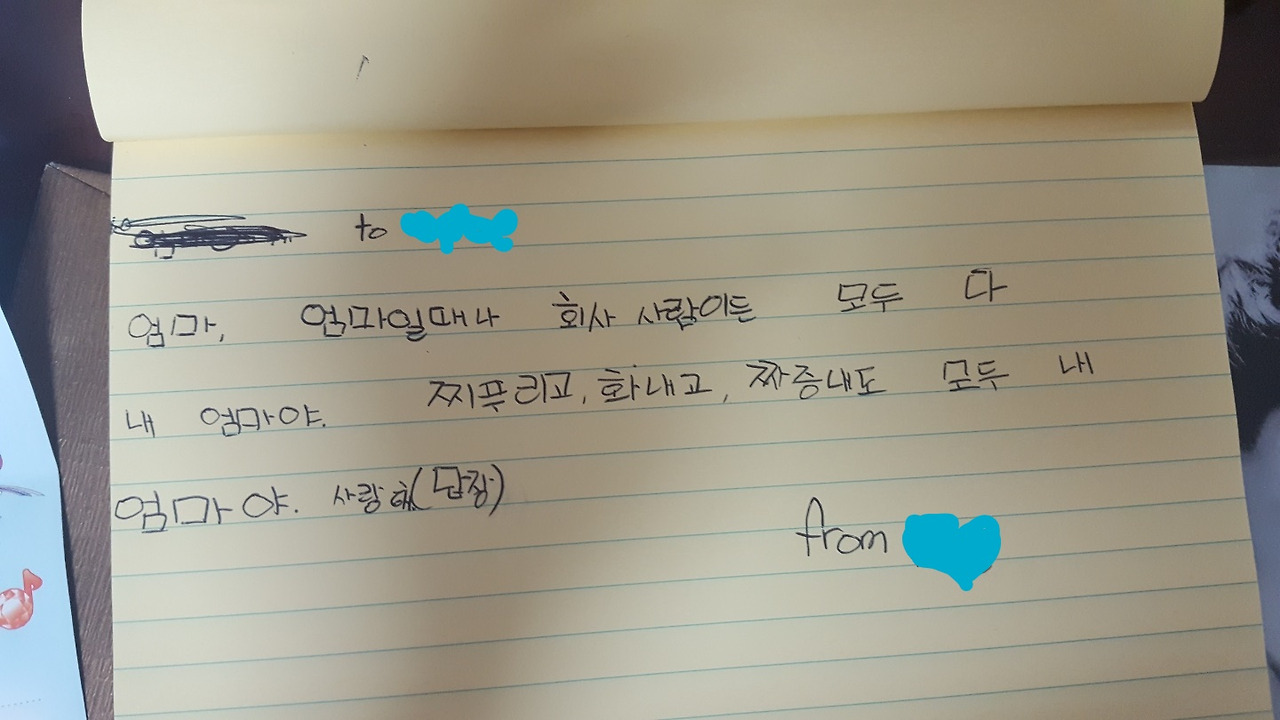 to
엄마, 엄마일때나 회사 사람이든 모두 다
내 엄마야. 찌푸리고, 화내고, 짜증내도 모두 내
엄마야. 사랑해(답장)
from